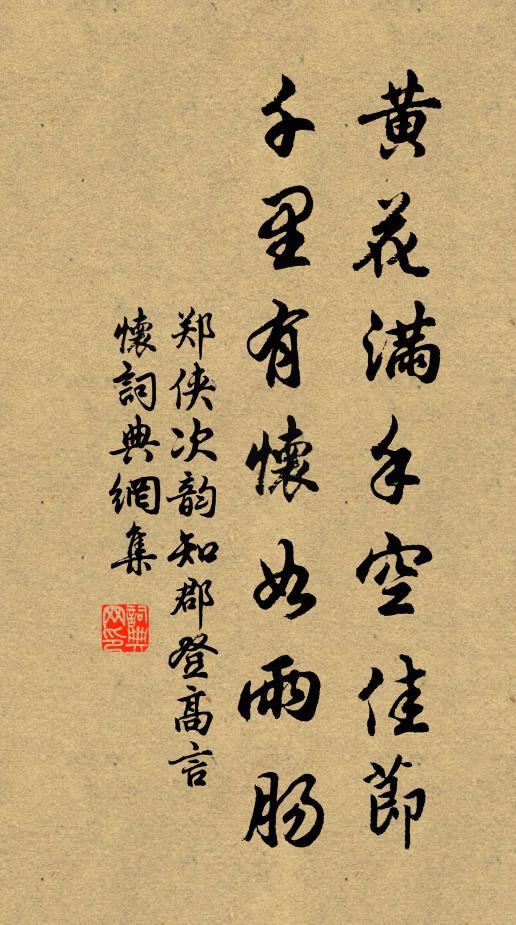 黄花滿手空佳節
千里有懷如雨腸
郑侠次韵知郡登高言
懷詞典網集
詞典网印